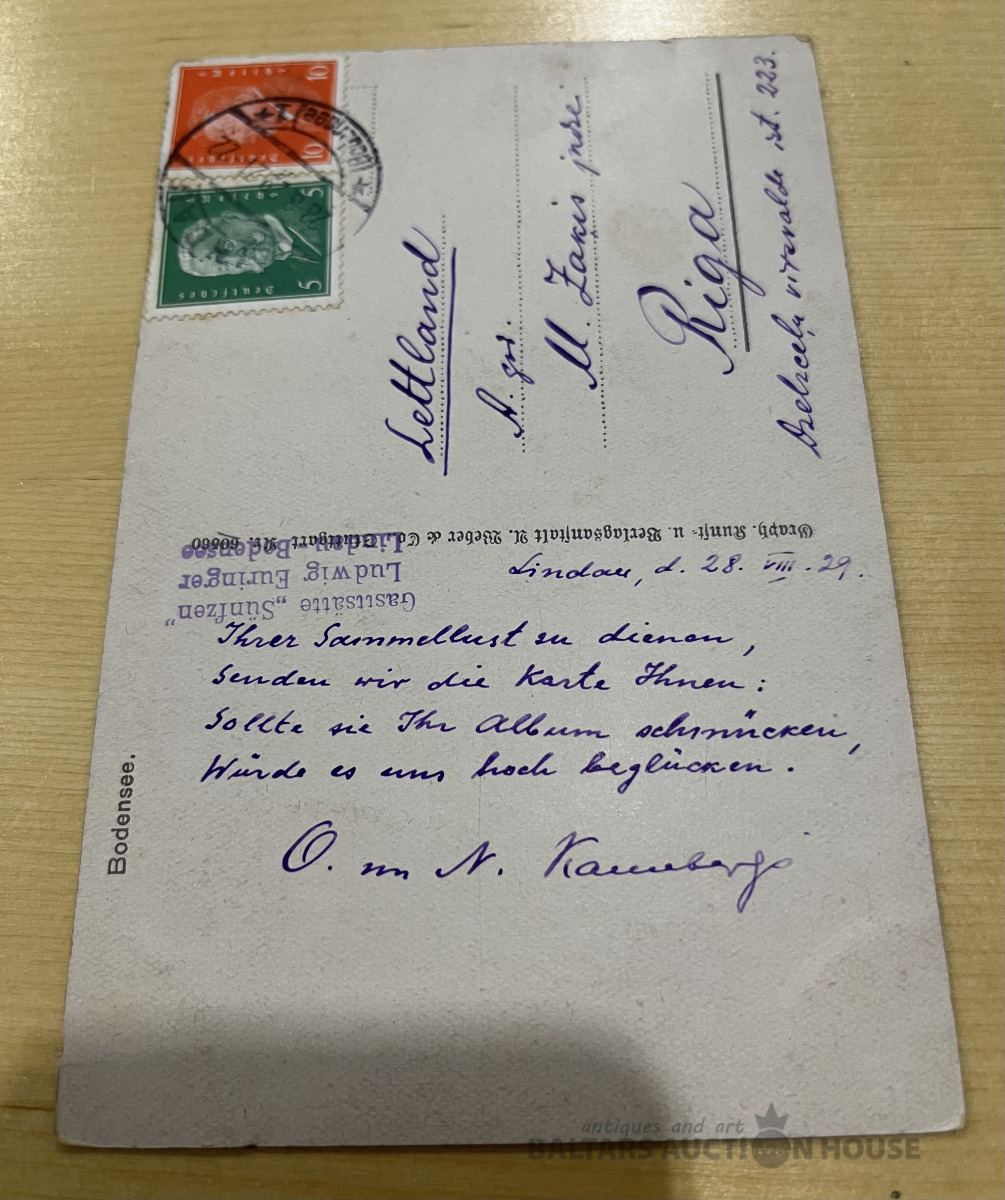 Lindau, d. 28. VIII. 29.
Ihrer Sammellust zu dienen,
Senden wir die Karte Ihnen:
Sollte sie Ihr Album schmücken,
Würde es uns hoch beglücken.
O. un N.
Lettland
A. god.
M. Zaķis jndze.
Riga
Dzelzceļu virsvalde ist. 223.
Graph. Kunst- u. Verlagsanstalt A. Weber & Co., Stuttgart Nr. 60560
Gaststätte „Sünfzen"
Ludwig Euringer
Lindau-Bodensee
Bodensee.
Deutsches
10
10
Deutsches
5
5
antiques and art
BALTARS AUCTION HOUSE